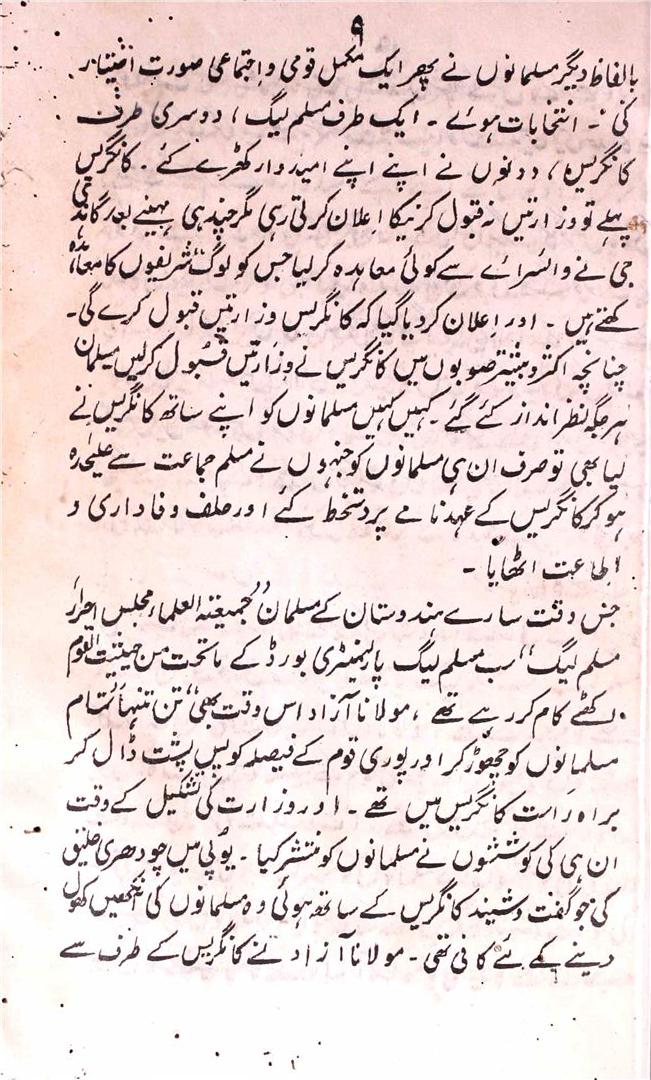 ۹
بالفاظ دیگر مسلمانوں نے پھر ایک مکمل قومی و اجتماعی صورت اختیار
کی ۔ انتخابات ہوئے ۔ ایک طرف مسلم لیگ، دوسری طرف
کانگریس، دونوں نے اپنے اپنے امیدوار کھڑے کئے ۔ کانگریس
پہلے تو وزارتیں نہ قبول کرنیکا اعلان کرتی رہی مگر چند ہی مہینے بعد گاندھی
جی نے وائسرائے سے کوئی معاہدہ کر لیا جس کو لوگ شریفوں کا معاہدہ
کہتے ہیں ۔ اور اعلان کر دیا گیا کہ کانگریس وزارتیں قبول کرے گی۔
چنانچہ اکثر و بیشتر صوبوں میں کانگریس نے وزارتیں قبول کرلیں مسلمان
ہر جگہ نظر انداز کئے گئے ۔ کہیں کہیں مسلمانوں کو اپنے ساتھ کانگریس نے
لیا بھی تو صرف ان ہی مسلمانوں کو جنہوں نے مسلم جماعت سے علیحدہ
ہو کر کانگریس کے عہد نامے پر دستخط کئے اور حلف وفاداری و
اطاعت اٹھایا ۔
جس وقت سارے ہندوستان کے مسلمان "جمیعتہ العلماء مجلس احرار
مسلم لیگ" سب مسلم لیگ پارلیمنٹری بورڈ کے ماتحت من حیثیت القوم
اکٹھے کام کر رہے تھے ، مولانا آزاد اس وقت بھی "تن تنہا" تمام
مسلمانوں کو چھوڑ کر اور پوری قوم کے فیصلہ کو پس پشت ڈال کر
براہ راست کانگریس میں تھے ۔ اور وزارت کی تشکیل کے وقت
ان ہی کی کوششوں نے مسلمانوں کو منتشر کیا ۔ یوپی میں چودھری خلیق
کی جو گفت و شنید کانگریس کے ساتھ ہوئی وہ مسلمانوں کی آنکھیں کھول
دینے کے لئے کافی تھی ۔ مولانا آزاد نے کانگریس کے طرف سے